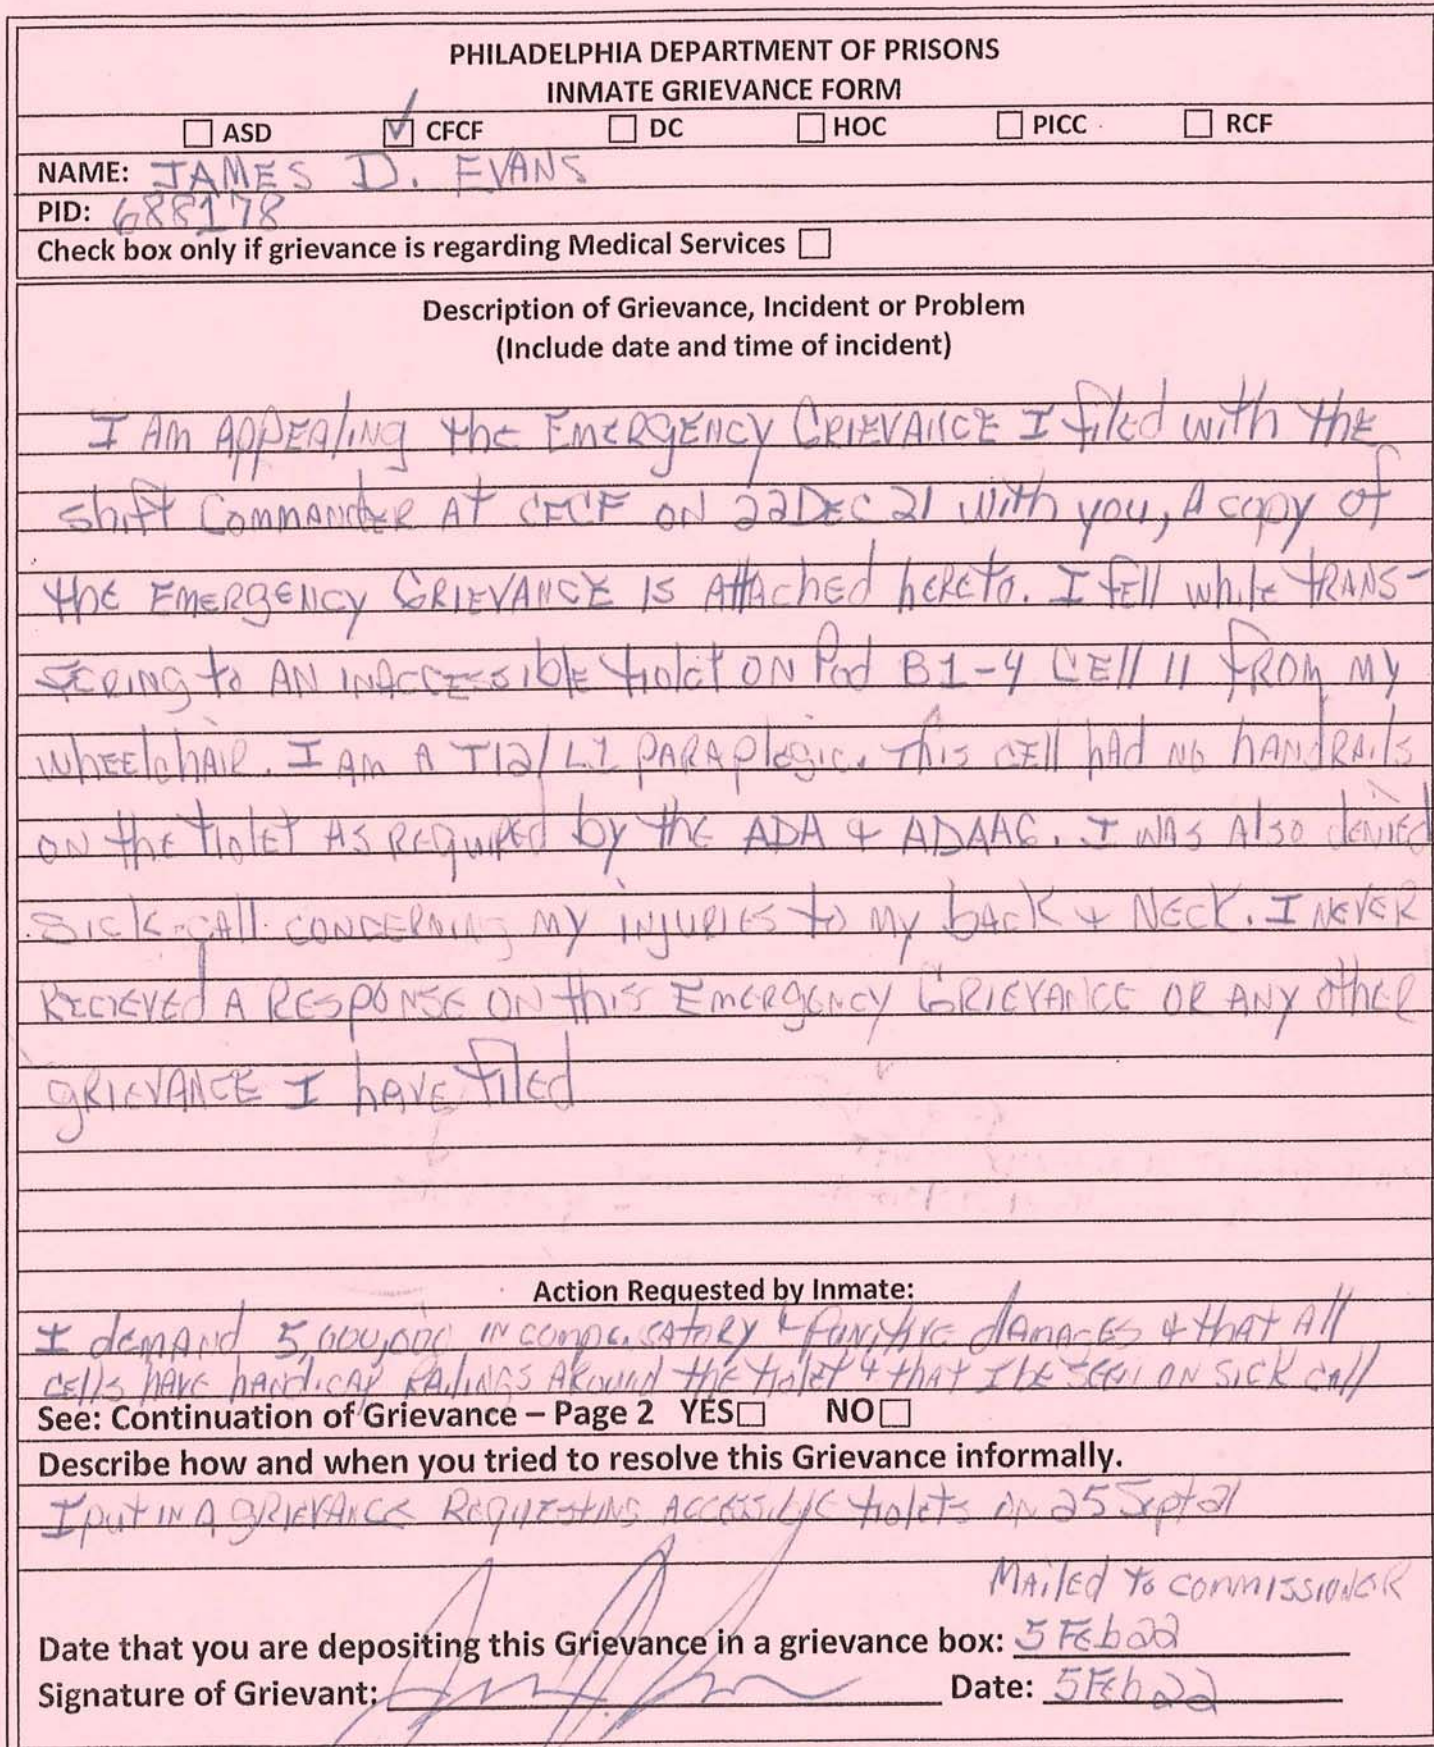 PHILADELPHIA DEPARTMENT OF PRISONS
INMATE GRIEVANCE FORM
☐ ASD ☑ CFCF ☐ DC ☐ HOC ☐ PICC ☐ RCF
NAME: JAMES D. EVANS
PID: 688178
Check box only if grievance is regarding Medical Services ☐
Description of Grievance, Incident or Problem
(Include date and time of incident)
I AM APPEAlING thE EmERgENCY GRIEVANCE I filed with the
shift CommANdER At CFCF ON 22DEC21 with you, A copy of
thE EmERgENCY GRIEVANCE IS AttAched hERETo. I fEll whilE tRANS-
FERING to AN INACCESSiblE tiolet ON Pod B1-4 CEll 11 fROM MY
whEElchAIR. I Am A T12/L1 PARAplegic. This CEll hAd NO hANdRAils
ON the tiolet AS REquiREd by the ADA & ADAAG. I WAS AlSo dENIEd
SICK-CAll CONCERNING MY INJURIES to MY bACK & NECK. I NEVER
RECIEVEd A RESPONSE ON this EmERgENCY GRIEVANCE OR ANY othER
gRIEVANCE I hAVE filed
Action Requested by Inmate:
I dEMANd 5,000,000 IN compe.SATORY & PUNITIVE dAMAGES & thAt All
CEllS hAVE hANdiCAP RAiliNGS AROUNd thE tiolet & thAt I bE SEEN ON SICK CAll
See: Continuation of Grievance – Page 2 YES☐ NO☐
Describe how and when you tried to resolve this Grievance informally.
I put IN A gRIEVANCE REQUESTING ACCESSiblE tiolets ON 25 Sept 21
MAilEd to COMMISSIONER
Date that you are depositing this Grievance in a grievance box: 5 Feb 22
Signature of Grievant: Date: 5 Feb 22